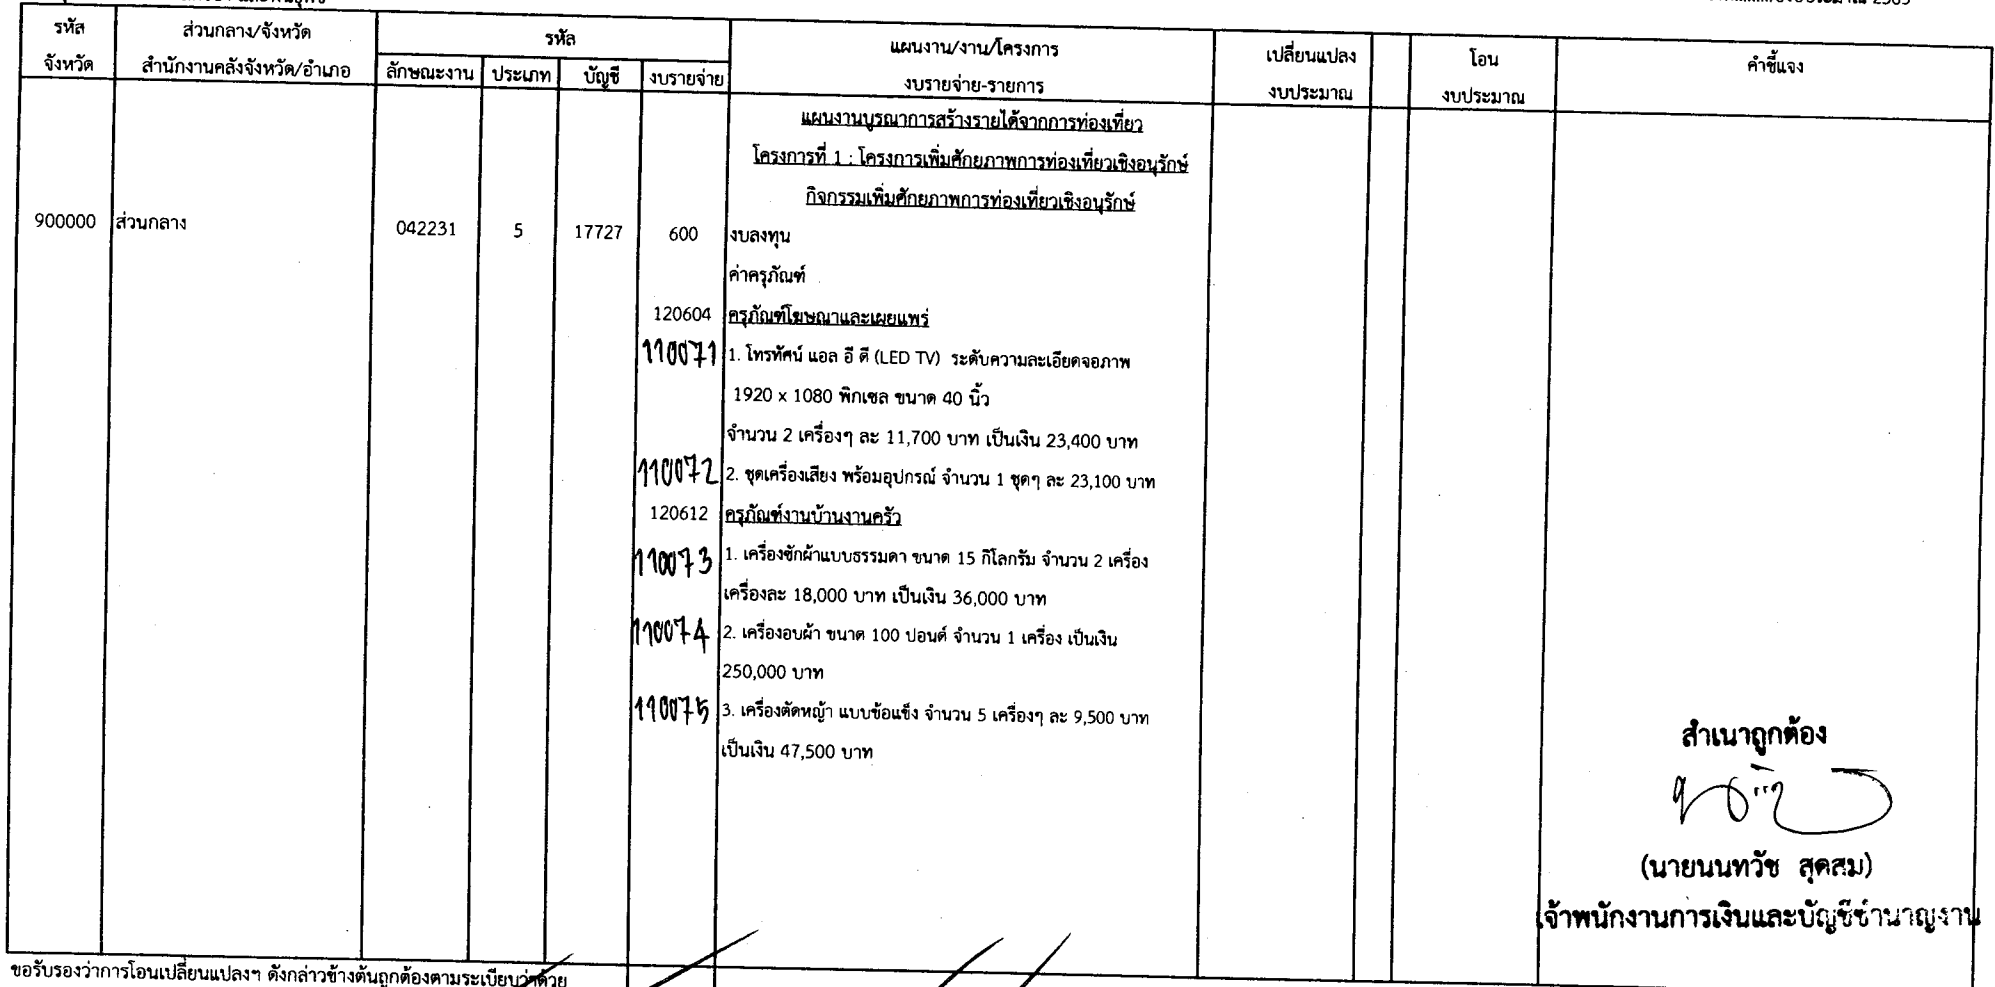 รหัส ส่วนกลาง/จังหวัด รหัส แผนงาน/งาน/โครงการ เปลี่ยนแปลง โอน คำชี้แจง
จังหวัด สำนักงานคลังจังหวัด/อำเภอ ลักษณะงาน ประเภท บัญชี งบรายจ่าย งบรายจ่าย-รายการ งบประมาณ งบประมาณ
แผนงานบูรณาการสร้างรายได้จากการท่องเที่ยว
โครงการที่ 1 : โครงการเพิ่มศักยภาพการท่องเที่ยวเชิงอนุรักษ์
กิจกรรมเพิ่มศักยภาพการท่องเที่ยวเชิงอนุรักษ์
900000 ส่วนกลาง 042231 5 17727 600 งบลงทุน
ค่าครุภัณฑ์
120604 ครุภัณฑ์โฆษณาและเผยแพร่
110071 1. โทรทัศน์ แอล อี ดี (LED TV) ระดับความละเอียดจอภาพ
1920 x 1080 พิกเซล ขนาด 40 นิ้ว
จำนวน 2 เครื่องๆ ละ 11,700 บาท เป็นเงิน 23,400 บาท
110072 2. ชุดเครื่องเสียง พร้อมอุปกรณ์ จำนวน 1 ชุดๆ ละ 23,100 บาท
120612 ครุภัณฑ์งานบ้านงานครัว
110073 1. เครื่องซักผ้าแบบธรรมดา ขนาด 15 กิโลกรัม จำนวน 2 เครื่อง
เครื่องละ 18,000 บาท เป็นเงิน 36,000 บาท
110074 2. เครื่องอบผ้า ขนาด 100 ปอนด์ จำนวน 1 เครื่อง เป็นเงิน
250,000 บาท
110075 3. เครื่องตัดหญ้า แบบข้อแข็ง จำนวน 5 เครื่องๆ ละ 9,500 บาท
เป็นเงิน 47,500 บาท
สำเนาถูกต้อง
(นายนนทวัช สุดสม)
เจ้าพนักงานการเงินและบัญชีชำนาญงาน
ขอรับรองว่าการโอนเปลี่ยนแปลงฯ ดังกล่าวข้างต้นถูกต้องตามระเบียบว่าด้วย